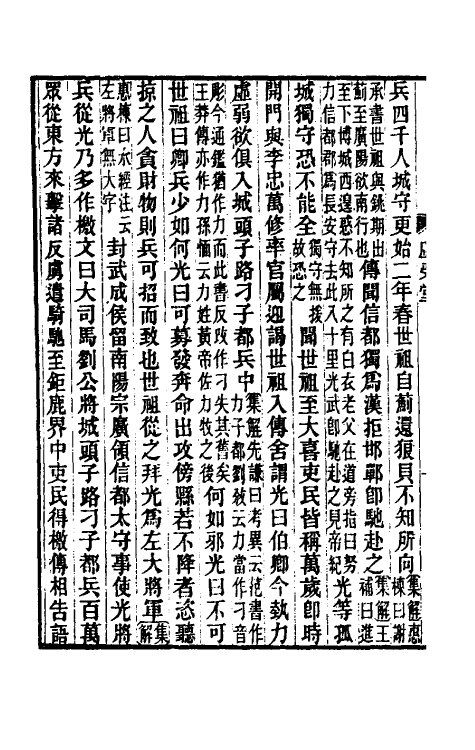 兵四千人城守更始二年春世祖自薊還狼貝不知所向集解惠棟曰謝
承書世祖與銚期出薊至廣陽欲南行也傳聞信都獨爲漢拒邯鄲卽馳赴之集解王補曰進
至下博城西遑惑不知所之有白衣老父在道旁指曰努力信都郡爲長安守去此八十里光武卽馳赴之見帝紀光等孤
城獨守恐不能全獨守無援故恐之聞世祖至大喜吏民皆稱萬歲卽時
開門與李忠萬修率官屬迎謁世祖入傳舍謂光曰伯卿今埶力
虛弱欲俱入城頭子路刁子都兵中集解先謙曰考異云范書作力子都劉攽云力當作刁音
彫今通鑑猶作力而此書反改作刁失其舊矣王莽傳亦作力孫愐云力姓黃帝佐力牧之後何如邪光曰不可
世祖曰卿兵少如何光曰可募發奔命出攻傍縣若不降者恣聽
掠之人貪財物則兵可招而致也世祖從之拜光爲左大將軍集解
惠棟曰水經注云左將卓無大字封武成侯留南陽宗廣領信都太守事使光將
兵從光乃多作檄文曰大司馬劉公將城頭子路刁子都兵百萬
眾從東方來擊諸反虜遣騎馳至鉅鹿界中吏民得檄傳相告語